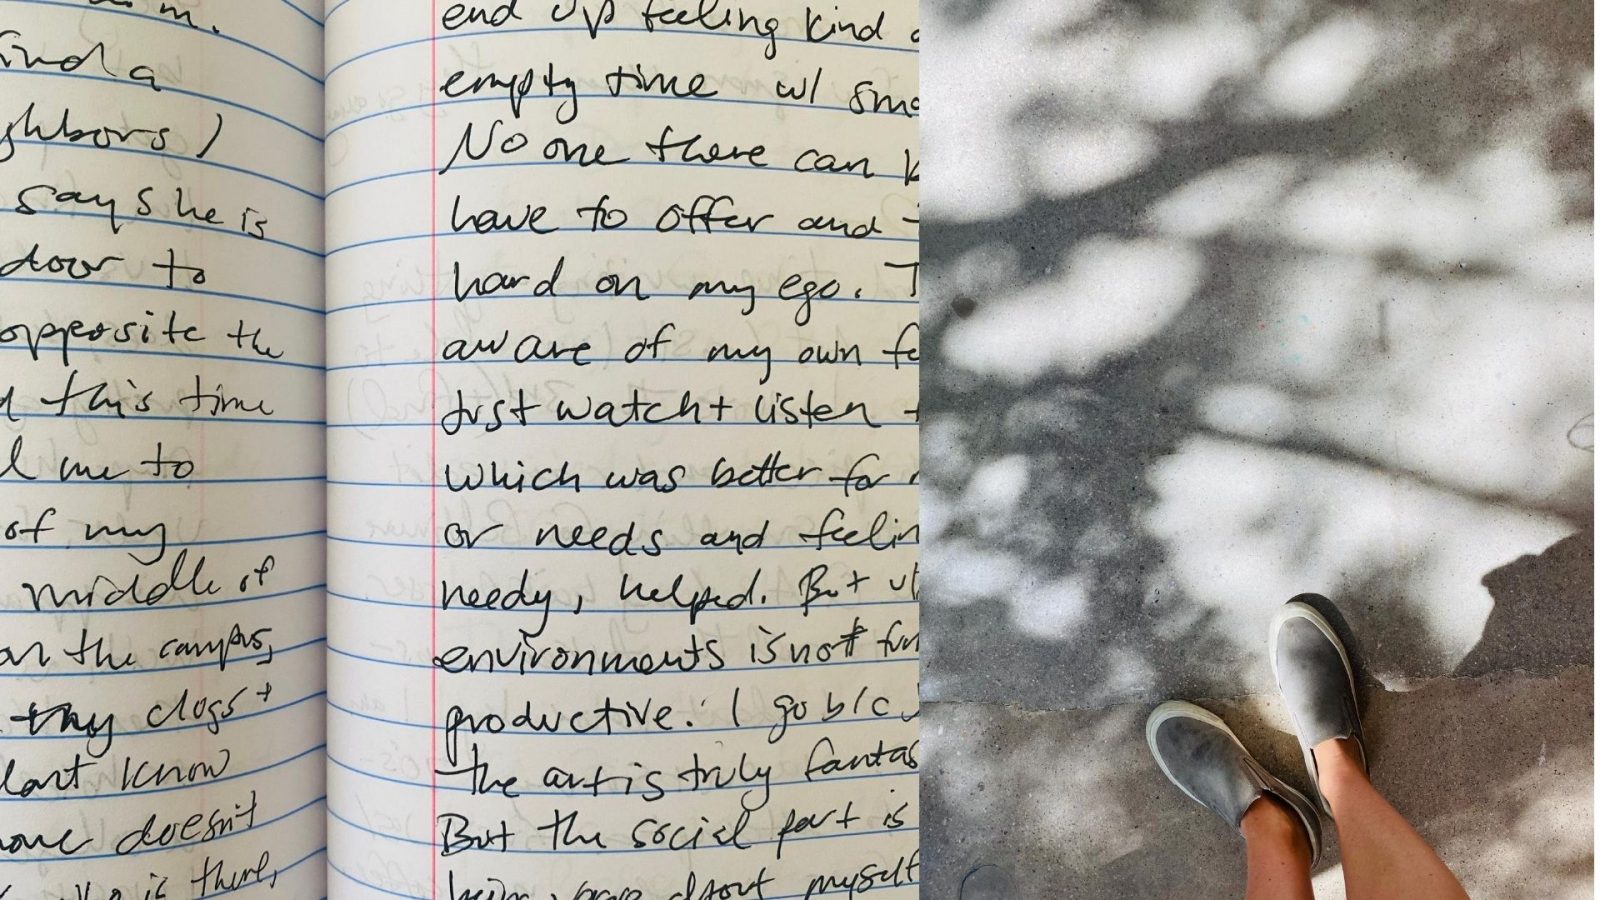 ind a
ghbors)
says he is
door to
opposite the
this time
me to
of my
middle of
on the campus,
they clogs +
know
doesn't
is there,
end up feeling kind
empty time w/ sma
No one there can k
have to offer and
hard on my ego. T
aware of my own fe
just watch + listen +
which was better for
or needs and feelin
needy, helped. But
environments is not fun
productive. I go b/c
the art is truly fantas
But the social part is
about myself